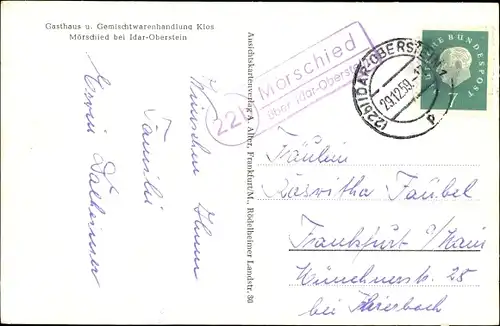 Gasthaus u. Gemischtwarenhandlung Klos
Mörschied bei Idar-Oberstein
Wünschen Ihnen
Familie
Erwin Dalheimer
Ansichtskartenverlag A. Alter, Frankfurt/M., Rödelheimer Landstr. 30
22b
Mörschied
über Idar-Oberstein
(22b) IDAR-OBERSTEIN 1
29.12.59
b
DEUTSCHE BUNDESPOST
7
Fräulein
Roswitha Faubel
Frankfurt a/Main
Münchnerstr. 25
bei